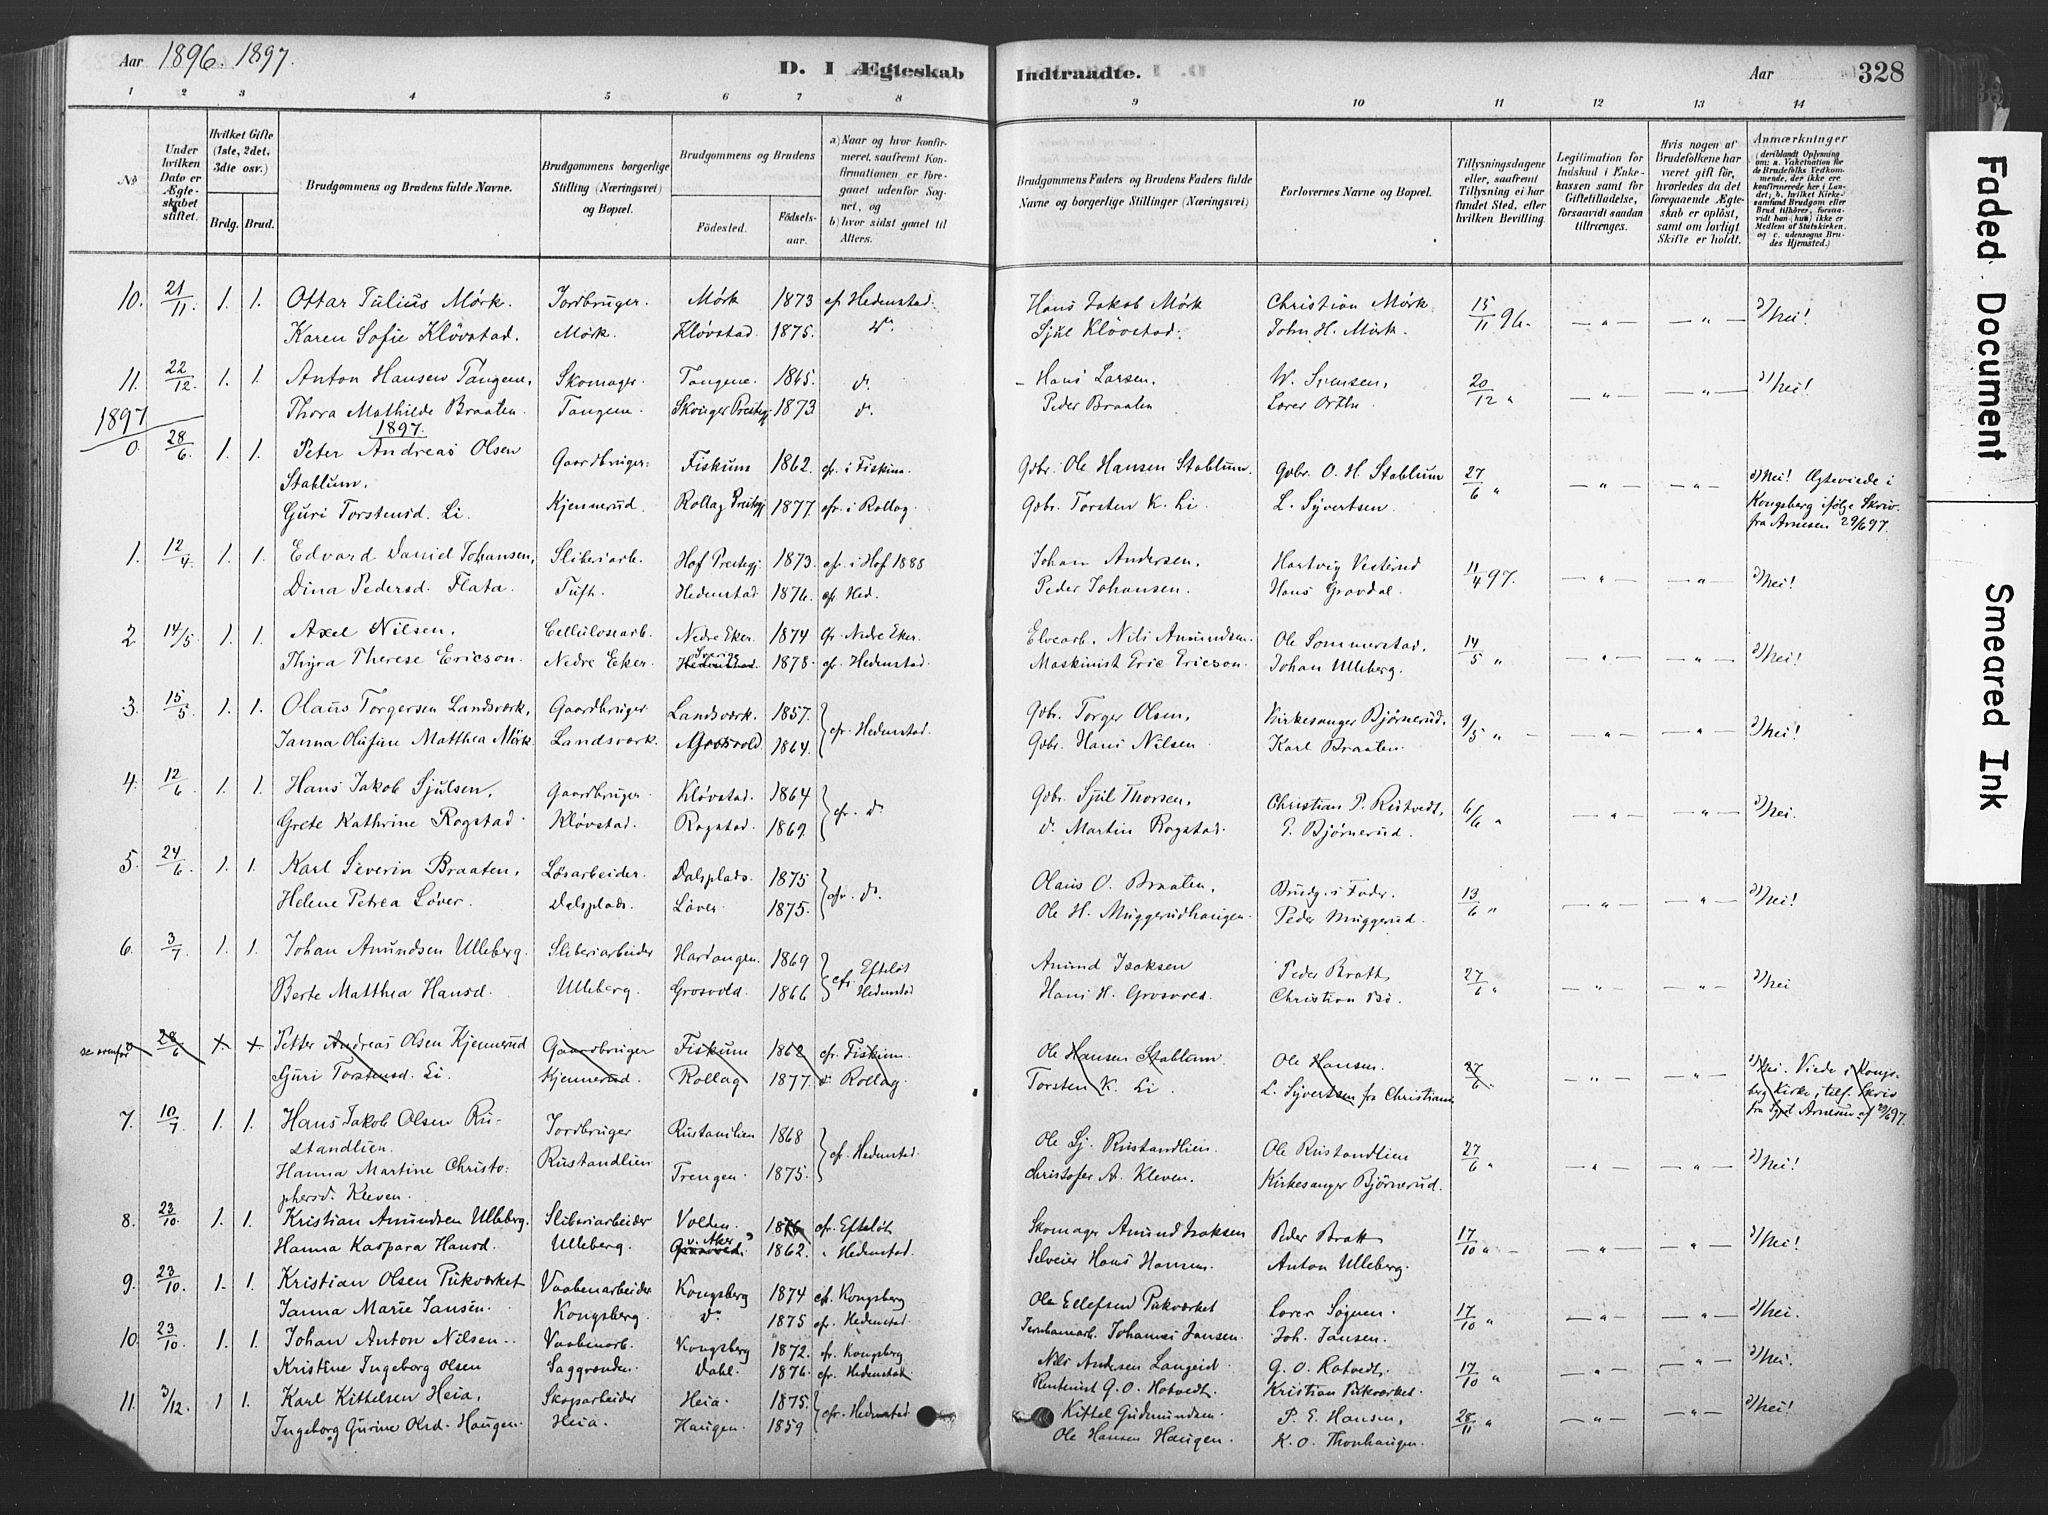 Aar 1896. 1897.
D. I Ægteskab Indtraadte.
Aar 328
1 2 3 4 5 6 7 8 9 10 11 12 13 14
No.
Under hvilken Dato er Ægteskabet stiftet.
Hvilket Gifte (1ste, 2det, 3die osv.)
Brdg. Brud.
Brudgommens og Brudens fulde Navne.
Brudgommens borgerlige Stilling (Næringsvei) og Bopæl.
Brudgommens og Brudens
Fødested. Fødselsaar.
a) Naar og hvor konfirmeret, saafremt Konfirmationen er foregaaet udenfor Sognet, og
b) hvor sidst gaaet til Alters.
Brudgommens Faders og Brudens Faders fulde Navne og borgerlige Stillinger (Næringsvei)
Forlovernes Navne og Bopæl.
Tillysningsdagene eller, saafremt Tillysning ei har fundet Sted, efter hvilken Bevilling.
Legitimation for Indskud i Enkekassen samt for Giftetilladelse, forsaavidt saadan tiltrænges.
Hvis nogen af Brudefolkene har været gift før, hvorledes da det foregaaende Ægteskab er opløst, samt om lovligt Skifte er holdt.
Anmærkninger
(deriblandt Oplysning om: a. Vaccination for de Brudefolks Vedkommende, der ikke ere konfirmerede her i Landet; b. hvilket Kirkesamfund Brudgom eller Brud tilhører, forsaavidt han (hun) ikke er Medlem af Statskirken, og c. udensogns Brudes Hjemsted.)
10. 21/11 1. 1. Ottar Julius Mörk. Jordbruger. Mörk 1873 cfr Hedenstad. Hans Jakob Mörk Christian Mörk. 15/11 96. — " — — " — a) Nei!
Karen Sofie Klövstad. Mörk. Klövstad. 1875. do. Sjul Klövstad. John H. Mörk.
11. 22/12. 1. 1. Anton Hansen Tangene, Skomager. Tangene. 1865. do. Hans Larsen. 20/12 " — " — — " — a) Nei!
Thora Mathilde Braaten. Tangene. 1873. do. Peder Braaten
1897
1897.
0. 28/6 1. 1. Peter Andreas Olsen Gaardbruger: Fiskum 1862. cfr. i Fiskum. Gbr. Ole Hansen Stablum. Gbr. O. H. Stablum 27/6 " — " — — " — a) Nei! Ægteviede i
Stablum.
Guri Torstensd. Li. Kjennerud. Rollag Prestegj. 1877. cfr. i Rollag. Gbr. Torsten K. Li. L. Syvertsen. Kongsberg ifølge Skriv. fra Arnesen 29/6 97.
1. 12/4 1. 1. Edvard Daniel Johansen, Sliberiarb. Hof Prestegj. 1873. cfr. i Hof 1888 Johan Andersen. Hartvig Vesterud 11/4 97. — " — — " — a) Nei!
Dina Pedersd. Flata. Tuft. Hedenstad. 1876. cfr. Hed. Peder Johansen. Hans Gravdal.
2 14/5 1. 1. Axel Nilsen. Cellulosearb. Nedre Eker. 1874 cfr. Nedre Eker. Elvearb. Nils Amundsen Ole Sommerstad. 14/5 " — " — — " — a) Nei!
Thyra Therese Ericson. Nedre Eker. Sverige Hedenstad. 1878. cfr. Hedenstad. Maskinist Eric Ericson. Johan Ulleberg.
3. 15/5 1. 1. Olaus Torgersen Landsværk. Gaardbruger Landsværk. 1857. cfr. Hedenstad. Gbr. Torger Olsen, Kirkesanger Bjørnerud, 9/5 " — " — — " — a) Nei!
Janna Olufine Matthea Mörk. Landsværk. Grosvold 1864. Gbr. Hans Nilsen Karl Braaten.
4. 12/6 1. 1. Hans Jakob Sjulsen. Gaardbruger. Kløvstad. 1864 cfr. do. Gbr. Sjul Thorsen. Christian P. Ristvedt, 6/6 " — " — — " — a) Nei.
Grete Kathrine Rogstad. Kløvstad. Rogstad. 1869. do. Martin Rogstad. E. Bjørnerud.
5. 24/6 1. 1. Karl Severin Braaten. Løsarbeider. Dalsplads. 1875 cfr. do. Olaus O. Braaten. Brudg. i Foder. 13/6 " — " — — " — a) Nei!
Helene Petrea Løver. Dalsplads. Løver. 1875. Ole H. Muggerudhaugen. Peder Muggerud.
6. 3/7 1. 1. Johan Amundsen Ulleberg. Sliberiarbeider Hardangen. 1869 cfr. Efteløt Amund Isaksen Peder Bratt 27/6 " — " — — " — a) Nei
Berte Matthea Hansd. Ulleberg. Grosvold. 1866 Hedenstad Hans H. Grosvold. Christian Bö.
se ovenfor 28/6 Petter Andreas Olsen Kjennerud Gaardbruger Fiskum 1862 cfr. Fiskum. Ole Hansen Stablum Ole Hansen. 27/6. a) Nei. Viede i Kongsberg Kirke, tilf. Skriv
Guri Torstensd. Li. Kjennerud. Rollag 1877. do Rollag. Torsten K. Li L. Syvertsen fra Christiania fra Arnesen af 29/6 97.
7. 10/7 1. 1. Hans Jakob Olsen Rustandlien. Jordbruger Rustanlien 1868 cfr. Hedenstad. Ole Sj. Rustandlien. Ole Rustandlien 27/6 " — " — — " — a) Nei!
Hanna Martine Christophersd. Kleven. Rustandlien Trengen. 1875. Christofer A. Kleven. Kirkesanger Bjørnerud.
8. 23/10. 1. 1. Kristian Amundsen Ulleberg. Sliberiarbeider Volden. 1876 cfr. Efteløt Skomager Amund Isaksen Peder Bratt 17/10 " — " — — " — a) Nei!
Hanna Kaspara Hansd. Ulleberg. v. Aker 1862. " Hedenstad. Selveier Hans Hansen. Anton Ulleberg.
9. 23/10. 1. 1. Kristian Olsen Pukværket Vaabenarbeider Kongsberg 1874 cfr. Kongsberg Ole Ellefsen Pukværket Lorer Sognen. 17/10 " — " — — " — a) Nei.
Janna Marie Jansen. Kongsberg. do. 1875 cfr. Hedenstad. Johannes Jansen. Joh. Jansen.
10. 23/10. 1. 1. Johan Anton Nilsen. Vaabenarb. Kongsberg 1872. cfr. Kongsberg Nils Andersen Langeid. G. O. Hotvedt. 17/10 " — " — — " — a) Nei.
Kristine Ingeborg Olsen Saggrenden. Dahl. 1876. cfr. Hedenstad. G. O. Hotvedt. Kristian Pukværket.
11. 3/12. 1 1. Karl Kittelsen Heia, Skogarbeider Heia. 1875. cfr. Hedenstad Kittel Gudmundsen. P. E. Hansen, 28/11 " — " — — " — a) Nei!
Ingeborg Gurine Olsd. Haugen. Heia. Haugen. 1859 Ole Hansen Haugen. K. O. Thonhaugen.
Faded Document
Smeared Ink